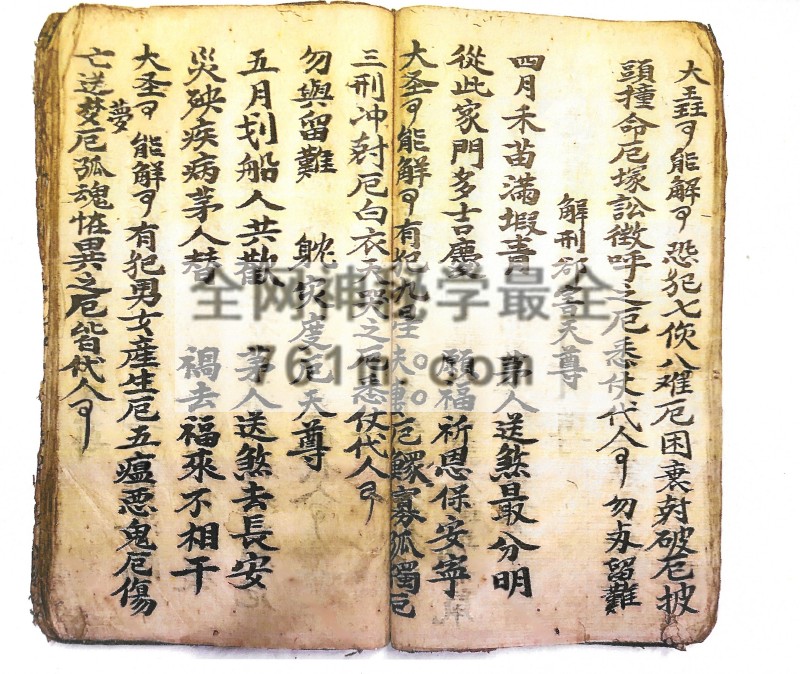 大聖 能解 恐犯七傷八难厄困裏对破厄披
頭撞命厄塚訟徵呼之厄悉仗代人 勿為留難
解刑 害天尊
四月禾苗满塅青 茅人送煞最分明
從此家門多吉慶 願福祈恩保安寧
大圣 能解 有犯九 夫妻厄鰥寡孤獨厄
三刑冲对厄白衣天哭之厄悉仗代人
勿與留難 救灾度厄天尊
五月划船人共歡 茅人送煞去長安
災殃疾病茅人替 禍去福來不相干
大圣 能解 有犯男女産生厄五瘟悪鬼厄傷
亡送梦厄孤魂怪異之厄皆代人
夢
全网神秘学最全
761m.com